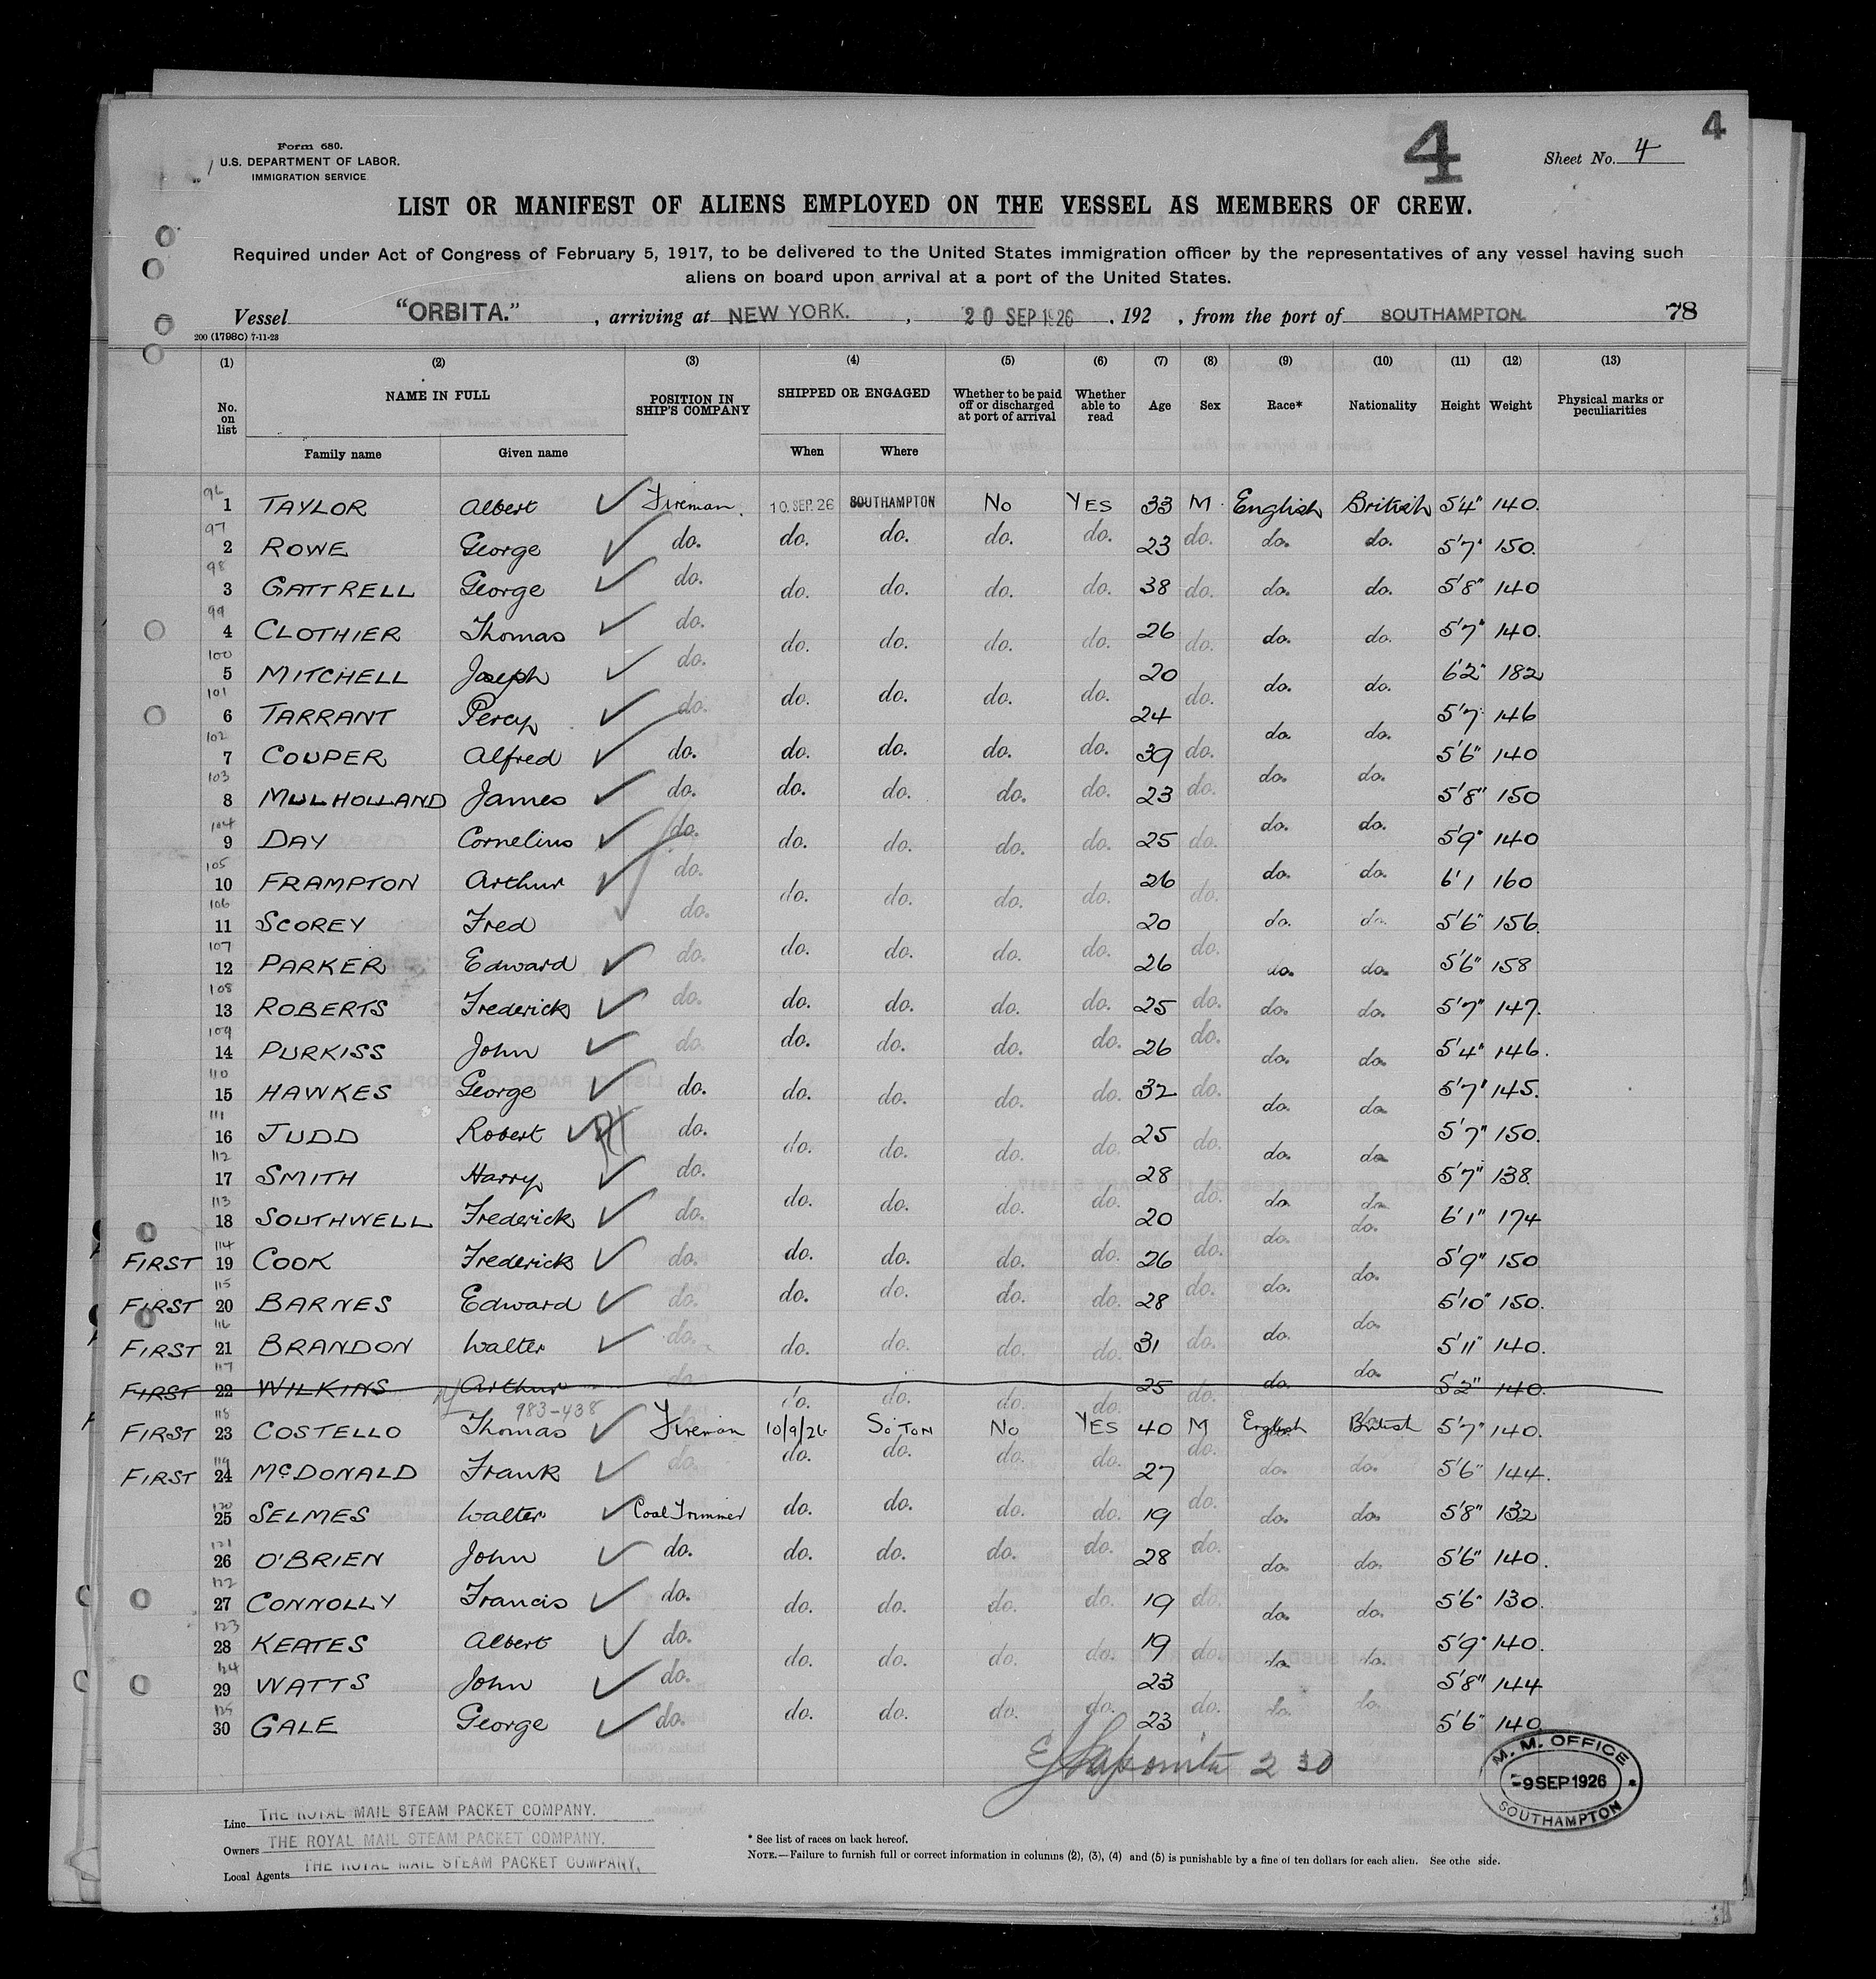 4
4
Form 680.
U.S. DEPARTMENT OF LABOR.
IMMIGRATION SERVICE
Sheet No. 4
LIST OR MANIFEST OF ALIENS EMPLOYED ON THE VESSEL AS MEMBERS OF CREW.
Required under Act of Congress of February 5, 1917, to be delivered to the United States immigration officer by the representatives of any vessel having such
aliens on board upon arrival at a port of the United States.
Vessel "ORBITA." , arriving at NEW YORK. , 20 SEP 1926 , 192 , from the port of SOUTHAMPTON 78
200 (1798C) 7-11-23
(1) (2) (3) (4) (5) (6) (7) (8) (9) (10) (11) (12) (13)
No. on list NAME IN FULL POSITION IN SHIP'S COMPANY SHIPPED OR ENGAGED Whether to be paid off or discharged at port of arrival Whether able to read Age Sex Race* Nationality Height Weight Physical marks or peculiarities
Family name Given name When Where
96 1 TAYLOR Albert Fireman. 10. SEP. 26 SOUTHAMPTON No YES 33 M English British 5'4" 140.
97 2 ROWE George do. do. do. do. do. 23 do. do. do. 5'7" 150.
98 3 GATTRELL George do. do. do. do. do. 38 do. do. do. 5'8" 140
99 4 CLOTHIER Thomas do. do. do. do. do. 26 do. do. do. 5'7" 140.
100 5 MITCHELL Joseph do. 20 do. do. 6'2" 182
101 6 TARRANT Percy do. do. do. do. do. 24 do. do. do. 5'7" 146
102 7 COUPER Alfred do. do. do. do. do. 39 do. do. do. 5'6" 140
103 8 MULHOLLAND James do. do. do. do. do. 23 do. do. do. 5'8" 150
104 9 DAY Cornelius do. do. do. do. do. 25 do. do. do. 5'9" 140
105 10 FRAMPTON Arthur do. do. do. do. do. 26 do. do. do. 6'1 160
106 11 SCOREY Fred do. 20 do. do. 5'6" 156.
107 12 PARKER Edward do. do. do. do. do. 26 do. do. do. 5'6" 158
108 13 ROBERTS Frederick do. do. do. do. do. 25 do. do. do. 5'7" 147.
109 14 PURKISS John do. do. do. do. do. 26 do. do. do. 5'4" 146.
110 15 HAWKES George do. do. do. do. do. 32 do. do. do. 5'7" 145.
111 16 JUDD Robert do. do. do. do. do. 25 do. do. do. 5'7" 150.
112 17 SMITH Harry do. 28 do. do. 5'7" 138.
113 18 SOUTHWELL Frederick do. do. do. do. do. 20 do. do. do. do. 6'1" 174
FIRST 114 19 COOK Frederick do. do. do. do. do. 26 do. do. do. 5'9" 150
FIRST 115 20 BARNES Edward do. do. do. do. do. 28 do. do. do. 5'10" 150.
FIRST 116 21 BRANDON Walter do. do. do. do. do. 31 do. do. do. 5'11" 140.
FIRST 117 22 WILKINS Arthur do. do. do. do. do. 25 do. do. do. 5'2" 140.
983-438
FIRST 118 23 COSTELLO Thomas Fireman 10/9/26 So'TON No YES 40 M English British 5'7" 140.
FIRST 119 24 McDONALD Frank do. do. do. do. do. 27 do. do. do. 5'6" 144.
120 25 SELMES Walter Coal Trimmer do. do. do. do. 19 do. do. do. 5'8" 132
121 26 O'BRIEN John do. do. do. do. do. 28 do. do. do. 5'6" 140.
122 27 CONNOLLY Francis do. do. do. do. do. 19 do. do. do. 5'6" 130.
123 28 KEATES Albert do. do. do. do. do. 19 do. do. do. 5'9" 140.
124 29 WATTS John do. 23 do. 5'8" 144
125 30 GALE George do. do. do. do. do. 23 do. do. 5'6" 140
2 30
M. M. OFFICE
9 SEP 1926
SOUTHAMPTON
Line THE ROYAL MAIL STEAM PACKET COMPANY.
Owners THE ROYAL MAIL STEAM PACKET COMPANY.
Local Agents THE ROYAL MAIL STEAM PACKET COMPANY.
* See list of races on back hereof.
NOTE.—Failure to furnish full or correct information in columns (2), (3), (4) and (5) is punishable by a fine of ten dollars for each alien. See othe side.